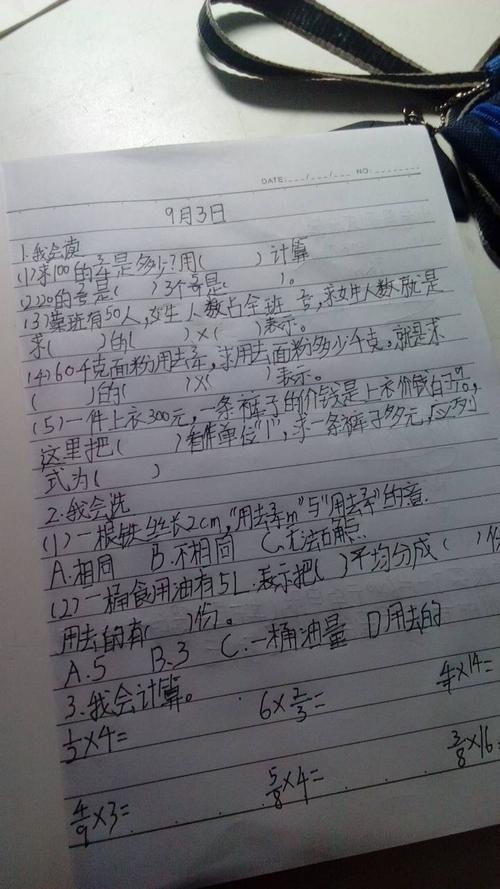 DATE: ___/___/___ NO:
9月3日
1.我会填
(1)求100的 是多少?用( )计算
(2)20的 是( ) 3个 是( )。
(3)某班有50人,女生人数占全班 ,求女生人数,就是
求( )的( )×( )表示。
(4)60千克面粉,用去 ,求用去面粉多少千克,就是求
( )的( )×( )表示。
(5)一件上衣300元,一条裤子的价钱是上衣价钱的 ,
这里把( )看作单位"1",求一条裤子多元,应列
式为( )
2.我会选
(1)一根铁丝长2cm,"用去 m"与"用去 "的意
A.相同 B.不相同 C.无法
(2)一桶食用油有5L.表示把( )平均分成( )份
用去的有( )份。
A.5 B.3 C.一桶油量 D用去的
3.我会计算。
1/2×4= 6×2/3= ×14=
4/9×3= 5/8×4= 3/8×16=